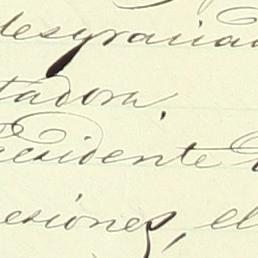 desgracia
tadora.
residente
esiones, el